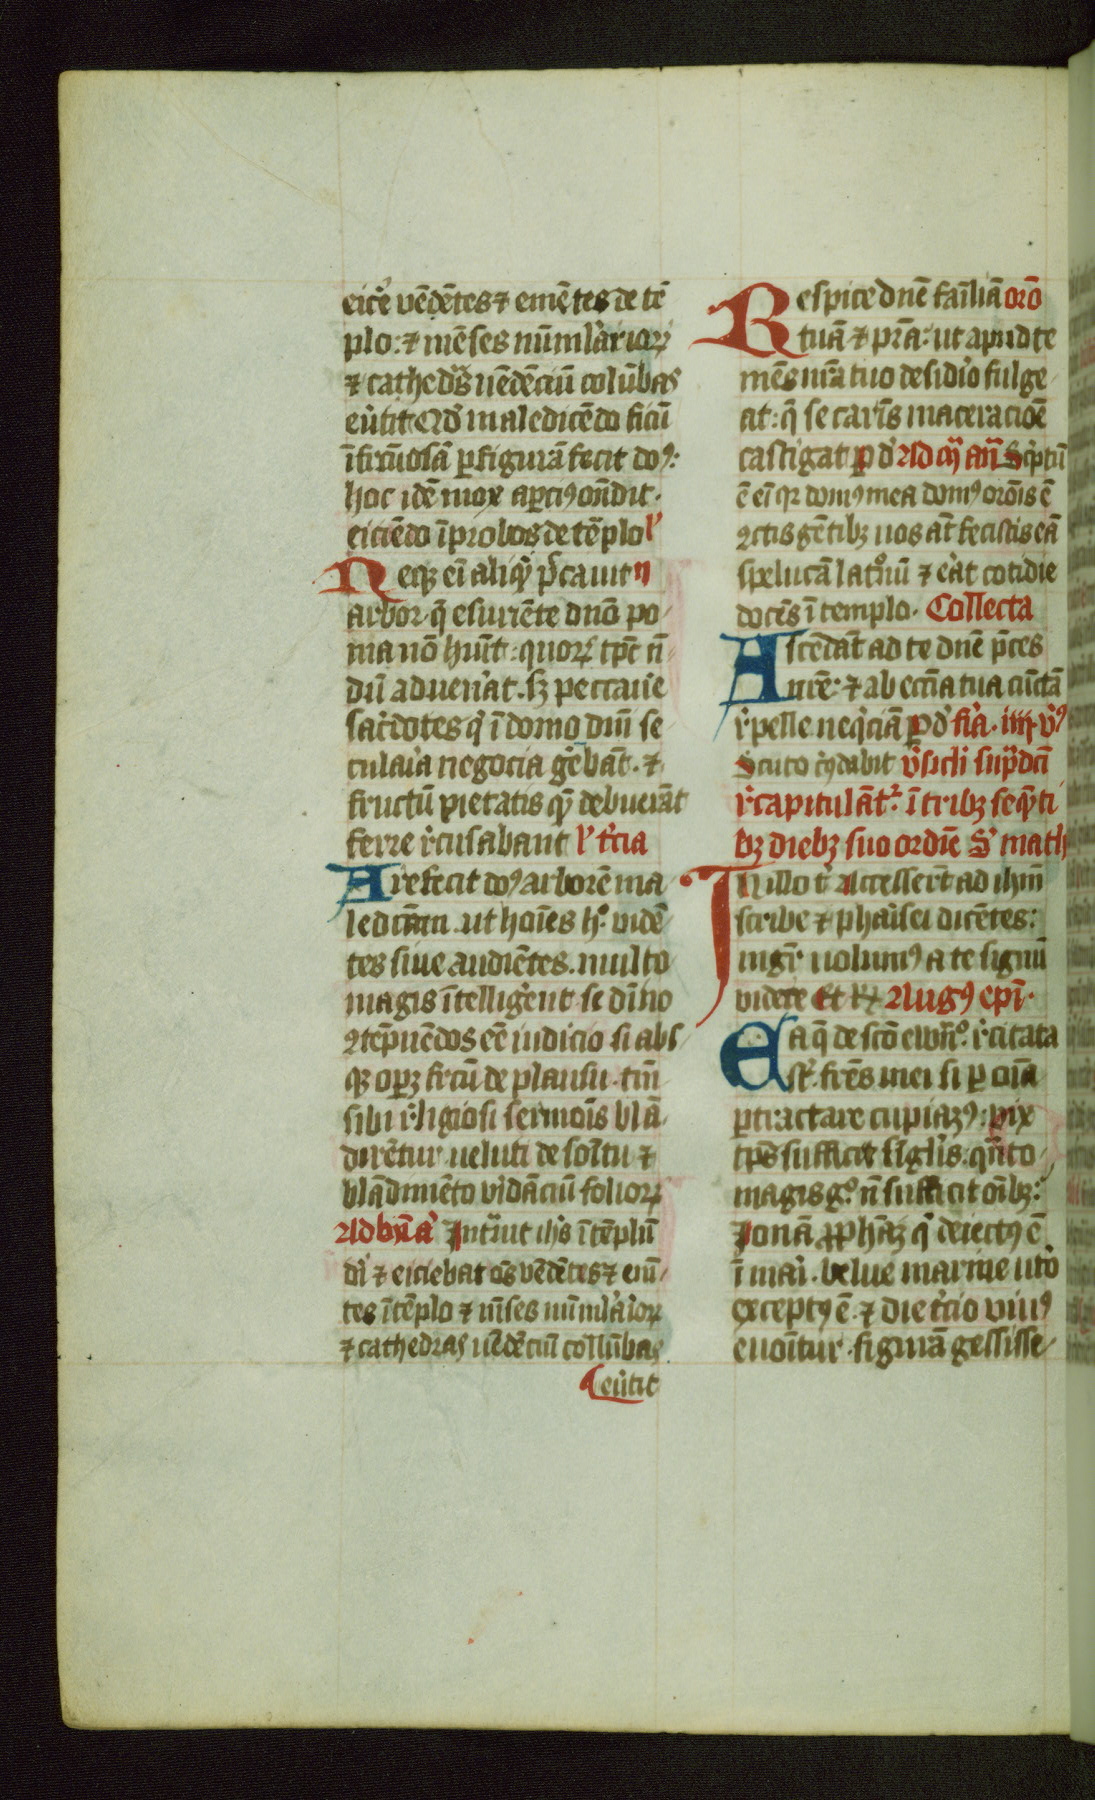 eic̄e vēdētes ⁊ emētes de tē
plo: ⁊ mēses nūml̓arioꝝ
⁊ cathedᷓs uēdēciū colūbas
eūtit Qd̓ maledicēdo ficū
īfructuosā ꝑ figurā fecit dōs:
hoc idē mox apcius oñdit.
eiciēdo īprobos de tēplo l̓
Neqꝫ eī aliqͥd p̄cauit ij
arbor q̄ esuriēte dn̄o po
ma nō hūit: quoꝝ tp̄s n̄
dū aduen̓at. sꝫ peccau̓e
sac̓dotes qͥ ī domo dn̄i se
cularia negocia ger̄ebāt. ⁊
fructū pietatis quē debuerāt
ferre r̓cusabant l̓ t̓cia
Arefecit dōs arborē ma
ledictam .ut hoīes h̓ uidē
tes siue audiētes. multo
magis ītelligerent se diuīno
ꝯtēpnēdos eē iudicio si abs
qꝫ oꝑꝫ fructū de plausu tm̄
sibi r̓ligiosi sermōis blā
dirētur ueluti de sonitu ⁊
blādimēto virēdāciū folioꝝ
Ad bn̄ ā Intᷓuit ihs̄ ī tēplū
dī ⁊ eiciebat oēs vēdētes ⁊ emē
tes ī tēplo ⁊ mēses nūml̓arioꝝ
⁊ cathedras uēdēciū collūbas
eūtit
Respice dn̄e fam̄iliā orō
tuā ⁊ p̄sta: ut apud te
mēs nr̄a tuo desid̓io fulge
at: q̄ se carnis maceracōe
castigat ꝑ d̓ Ad m̄g añ Sc̓ptū
ē eī qꝛ domꝰ mea domꝰ orōis ē
cūctis gētibꝫ uos aūt fecistis eā
spelūcā latronū ⁊ erat cotidie
docēs ī templo. Collecta
Ascēdāt ad te dn̄e p̄ces
nr̄e: ⁊ ab ecc̄ia tua cūctā
r̓pelle neqͥciā ꝑ d̓ fr̓ia .iiij. v̓s
Scuto cͥcūdabit v̓siculi sup̄dc̄i
r̓capitulāt᷑ ī tribꝫ seqn̄ti
bꝫ diebꝫ suo ordīe S' math
In illo t̓ Accesserūt ad ihm̄
scribe ⁊ pharisei dicētes:
magr̄ uolumꝰ a te signū
videre Et r̄ł Augꝰ ep̄i.
Ea q̄ de scō ewn̄g̓ r̓citata
st̄ fr̄es mei si ꝑ oīa
ꝑtractare cupiamꝰ: vix
tp̄s sufficit singl̓is: quāto
magis g̓ n̄ sufficit oībꝫ:
Jonā ꝓphetā qͥ deiectꝰ ē
ī mari. belue marine utero
exceptꝰ ē ⁊ die tercio viuꝰ
euomitur .figurā gessisse